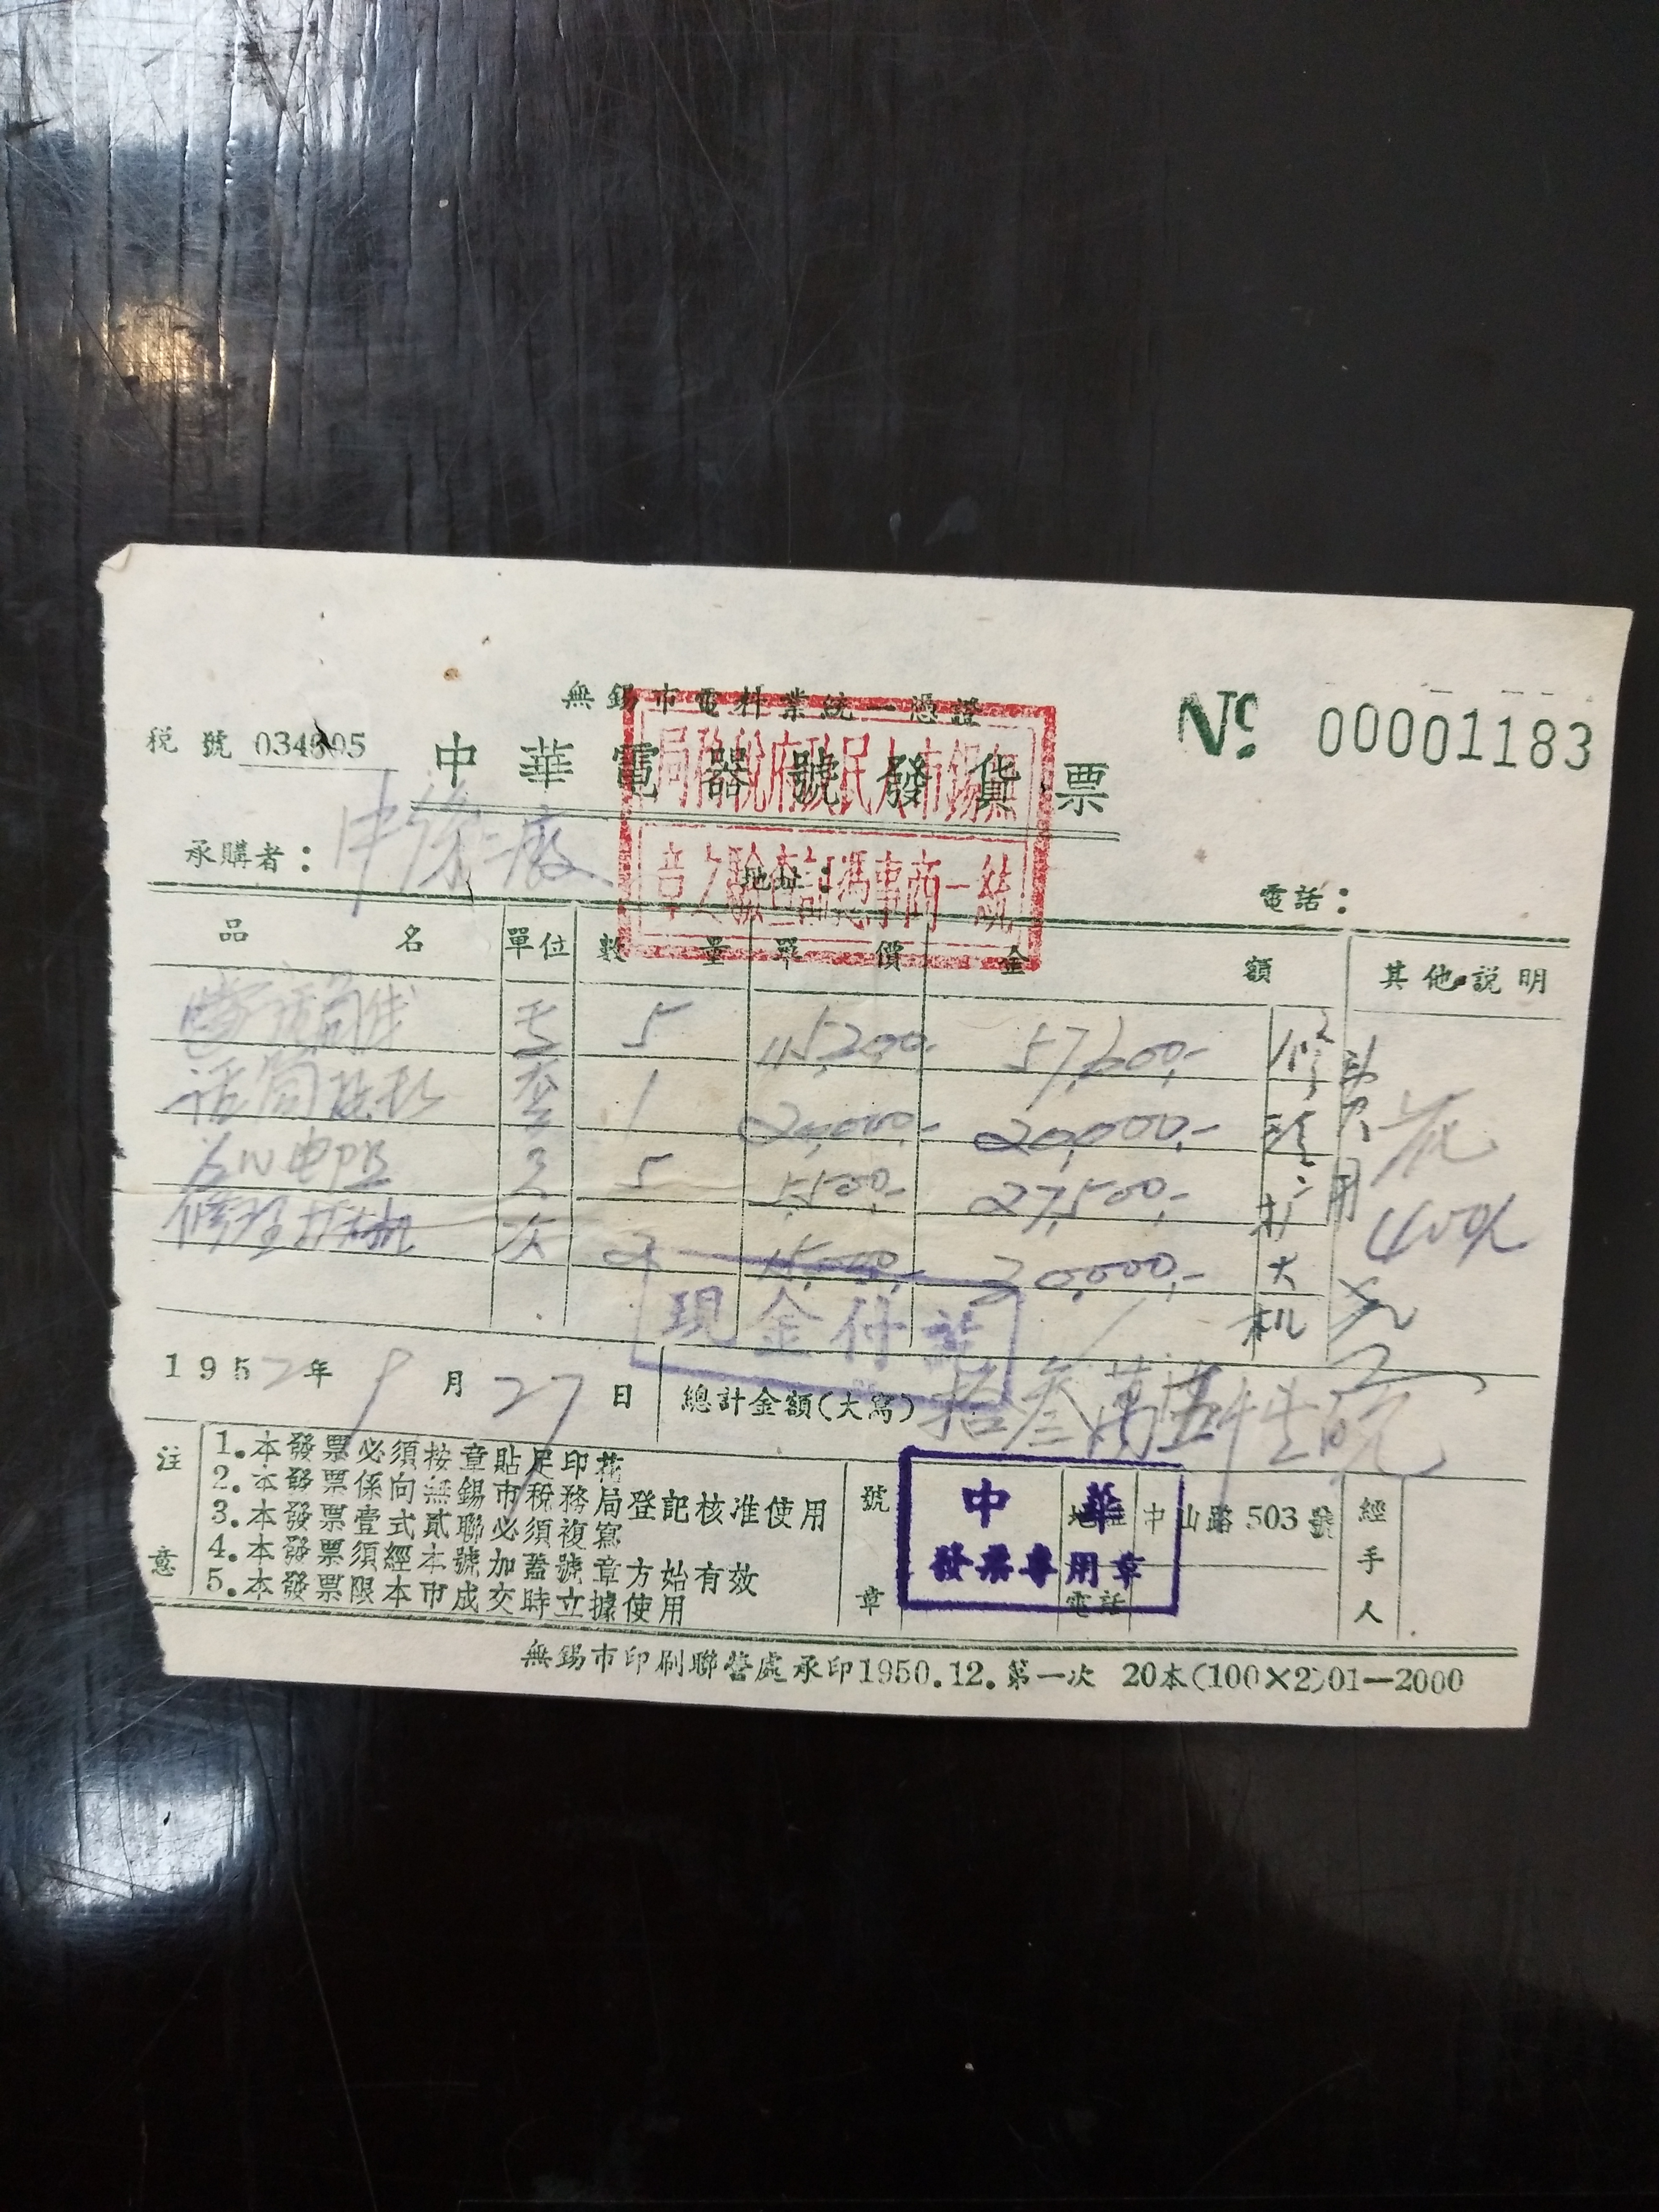 無錫市電料業統一憑證
稅號 034695
中華電器號發貨票
№ 00001183
無錫市人民政府稅務局
統一商事憑証查驗之章
承購者: 申 廠
地址:
電話:
品名 單位 數量 單價 金額 其他說明
5 11,5200.- 57,600.-
話筒 套 1 20,000.- 20,000.-
电阻 只 5 5,500.- 27,500.-
修理扩大机 次 2 15,000.- 30,000.-
修
扩
大
机
用
現金付訖
1952年9月27日
總計金額(大寫) 拾叁萬伍仟
注意
1.本發票必須按章貼足印花
2.本發票係向無錫市稅務局登記核准使用
3.本發票壹式貳聯必須複寫
4.本發票須經本號加蓋號章方始有效
5.本發票限本市成交時立據使用
號章
中華
發票專用章
地址 中山路503號
電話
經手人
無錫市印刷聯營處承印1950.12.第一次 20本(100×2)01—2000